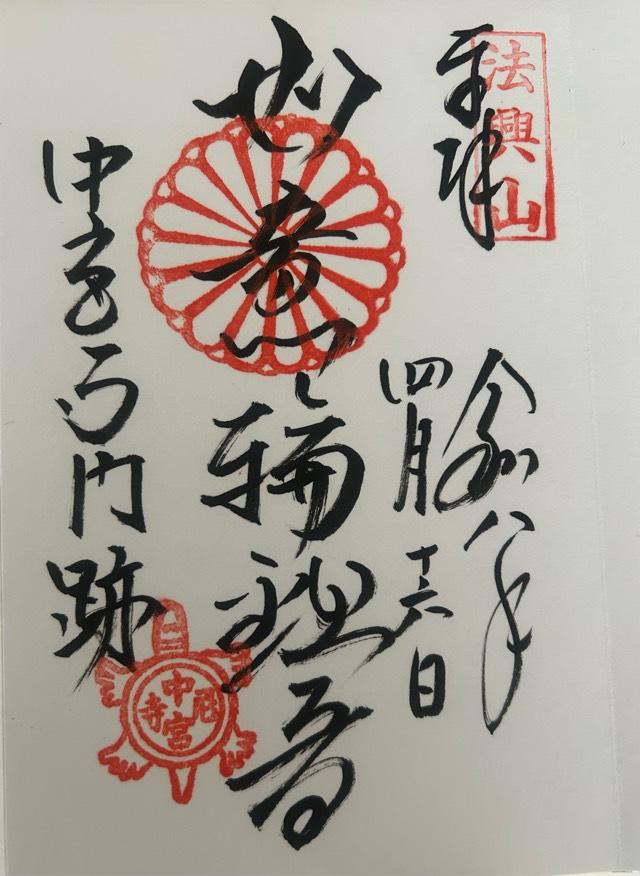 法興山
奉拝
令和八年
四月十六日
如意輪観音
中宮寺門跡
中宮尼寺